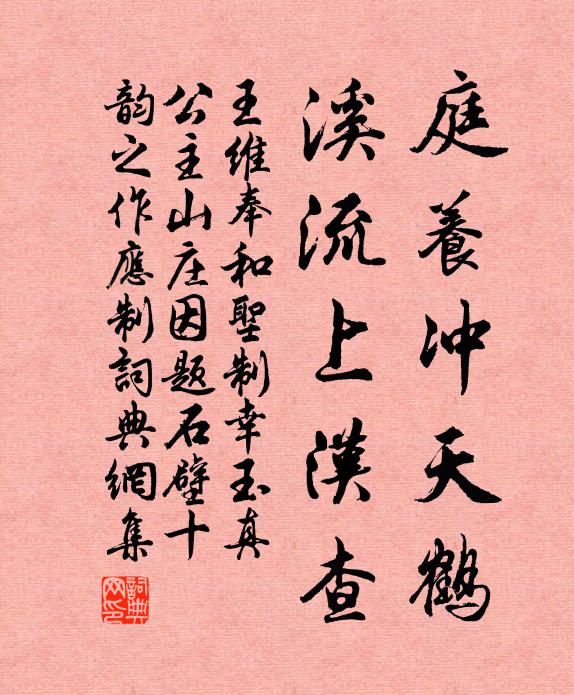 庭養冲天鶴
溪流上漢查
王維奉和聖制幸玉真
公主山庄因題石壁十
韵之作應制詞典網集
詞典網印